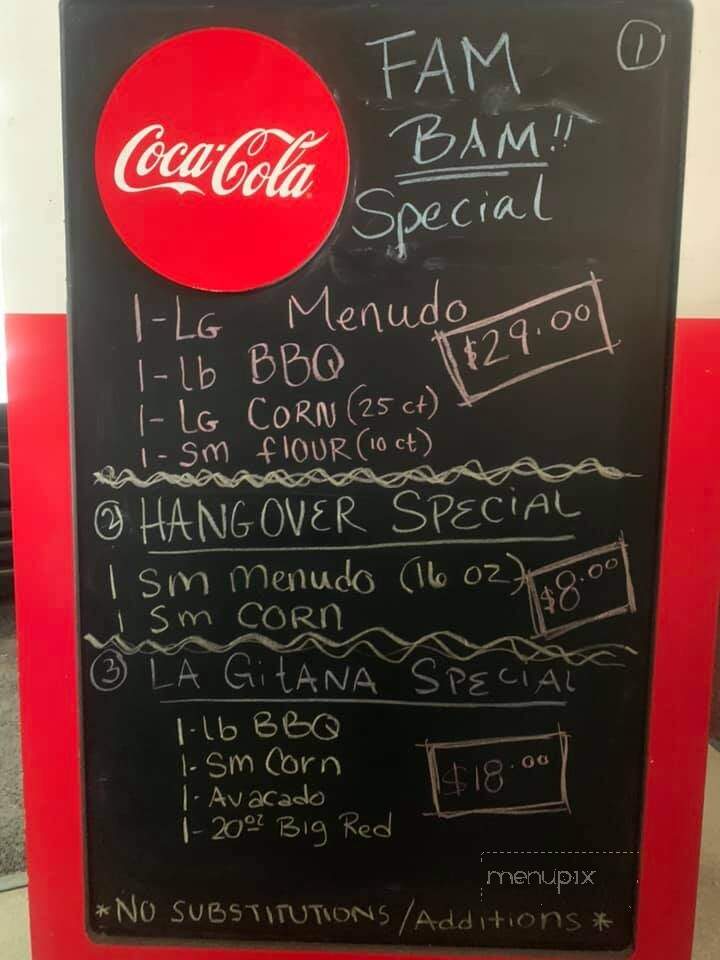 Coca-Cola
FAM
BAM!!
Special
①
1-LG Menudo
$29.00
1-lb BBQ
1-LG CORN (25 ct)
1-SM flOUR (10 ct)
② HANGOVER SPECiAL
1 SM Menudo (16 oz)
$8.00
1 SM CORN
③ LA GitANA SPECIAL
1-lb BBQ
1-SM Corn
$18.00
1-Avacado
1-20oz Big Red
menupix
*NO SUBSTITUTIONS/Additions*